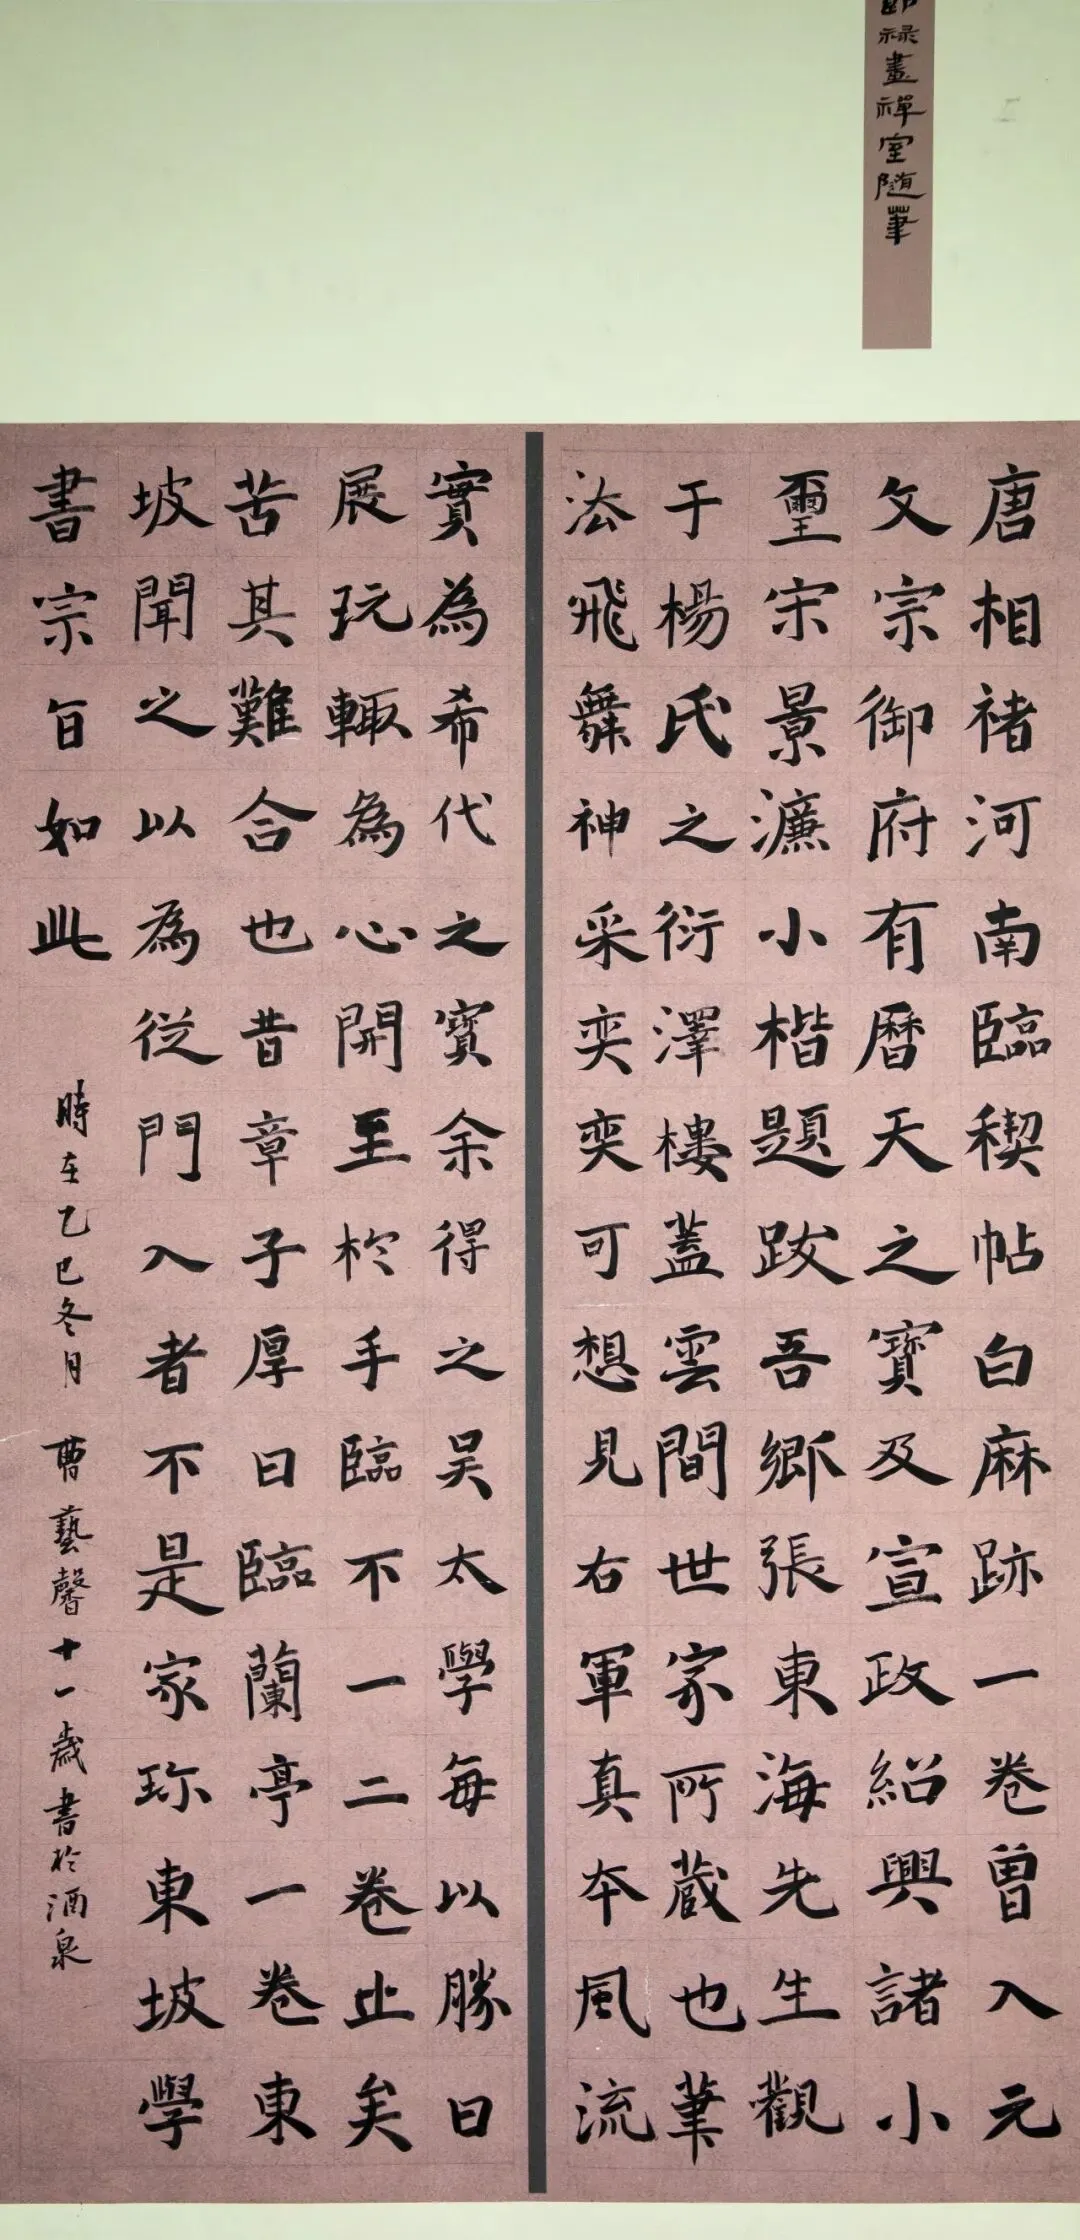 禄畫禪室隨筆
唐相褚河南臨稧帖白麻跡一卷曾入元
文宗御府有曆天之寶及宣政紹興諸小
璽宋景濂小楷題跋吾鄉張東海先生觀
于楊氏之衍澤樓蓋雲間世家所蔵也筆
法飛舞神采奕奕可想見右軍真本風流
實為希代之寶余得之吴太學每以勝日
展玩輙為心開至於手臨不一二卷止矣
苦其難合也昔章子厚日臨蘭亭一卷東
坡聞之以為従門入者不是家珎東坡學
書宗旨如此
時在乙巳冬月 曹藝馨十一歲書於酒泉